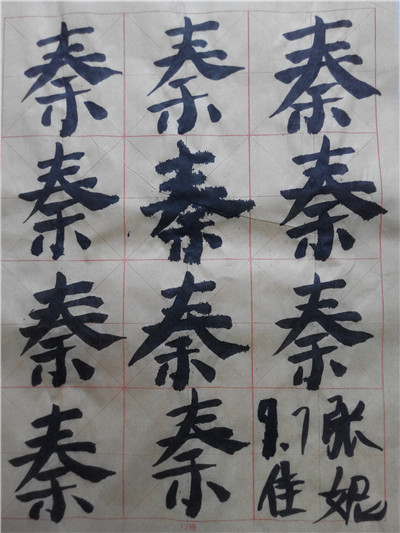 秦秦秦
秦秦秦
秦秦秦
秦秦9.7张
佳妮